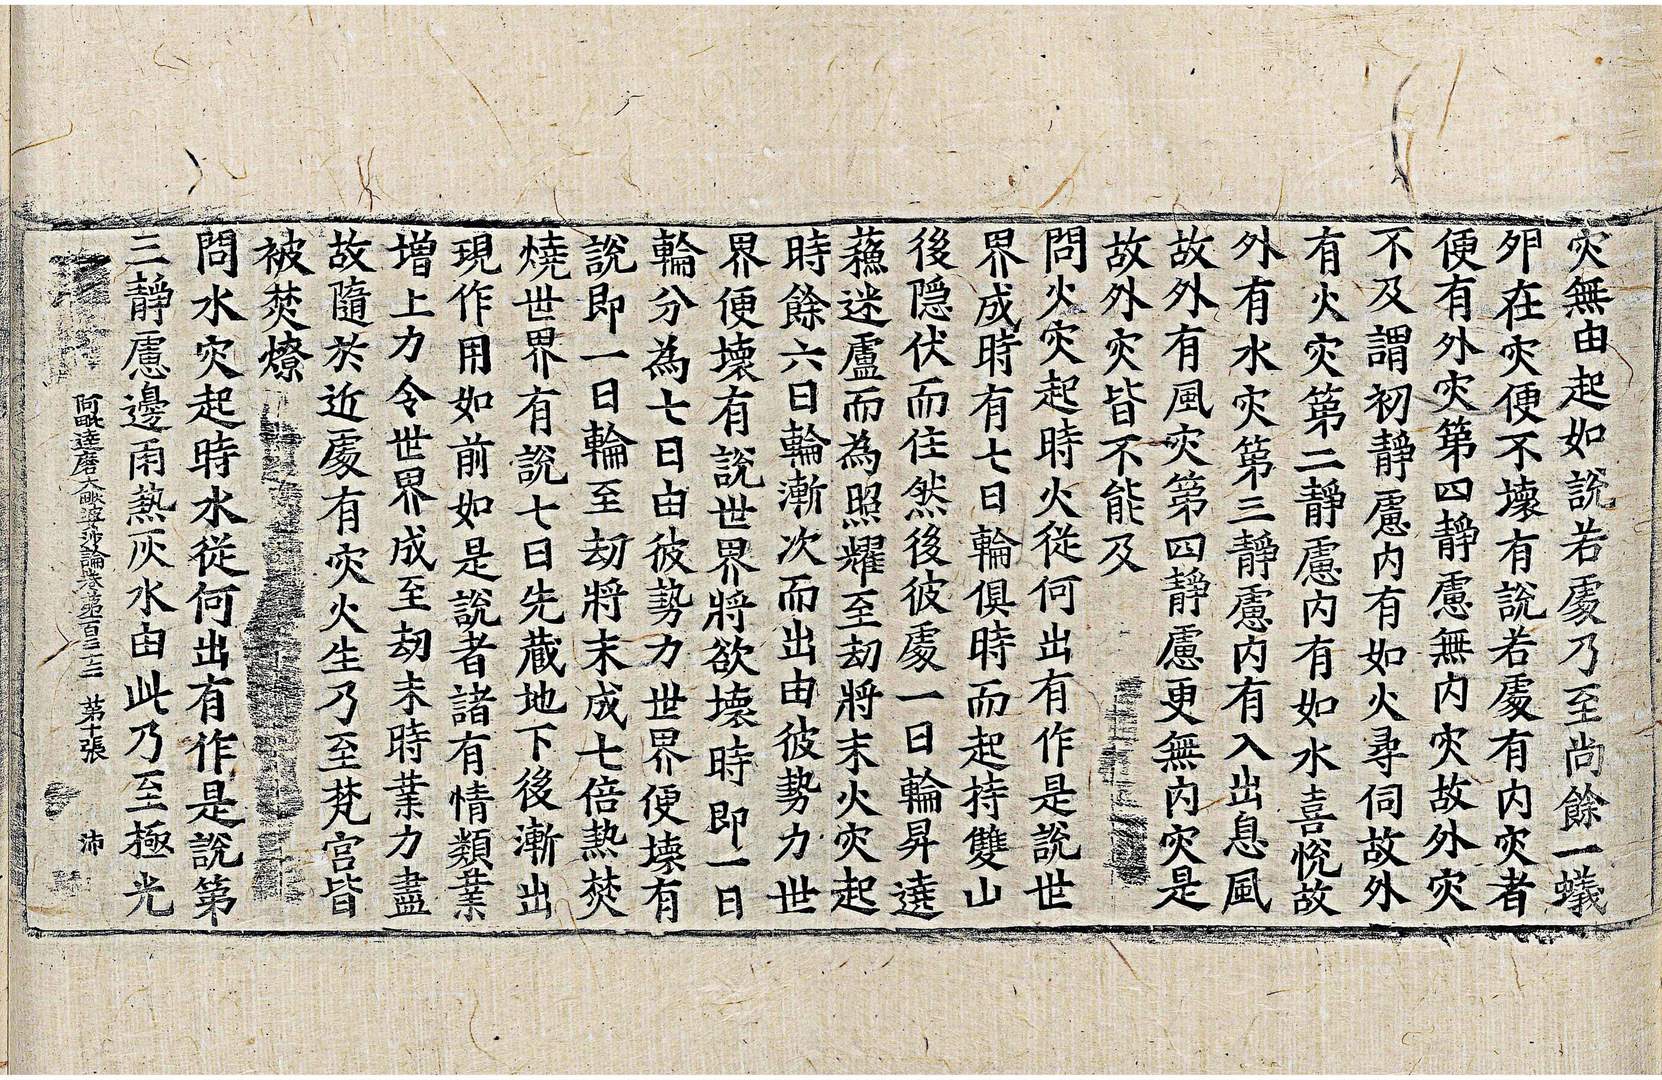 灾無由起如說若䖏乃至尚餘一蟻
夘在灾便不壞有說若䖏有内灾者
便有外灾第四靜慮無内灾故外灾
不及謂初靜慮内有如火尋伺故外
有火灾第二靜慮内有如水喜恱故
外有水灾第三靜慮内有入出息風
故外有風灾第四靜慮更無内灾是
故外灾皆不能及
問火灾起時火從何出有作是說世
界成時有七日輪俱時而起持雙山
後隱伏而住然後彼䖏一日輪昇遶
蘓迷盧而為照耀至劫將末火灾起
時餘六日輪漸次而出由彼勢力世
界便壞有說世界將欲壞時即一日
輪分為七日由彼勢力世界便壞有
說即一日輪至劫將末成七倍熱焚
燒世界有說七日先蔵地下後漸出
現作用如前如是說者諸有情類業
增上力令世界成至劫末時業力盡
故隨於近䖏有灾火生乃至梵宫皆
被焚燎
問水灾起時水從何出有作是說第
三靜慮邊雨熱灰水由此乃至極光
阿毗達磨大毗婆沙論卷第百三十三 第十張 沛